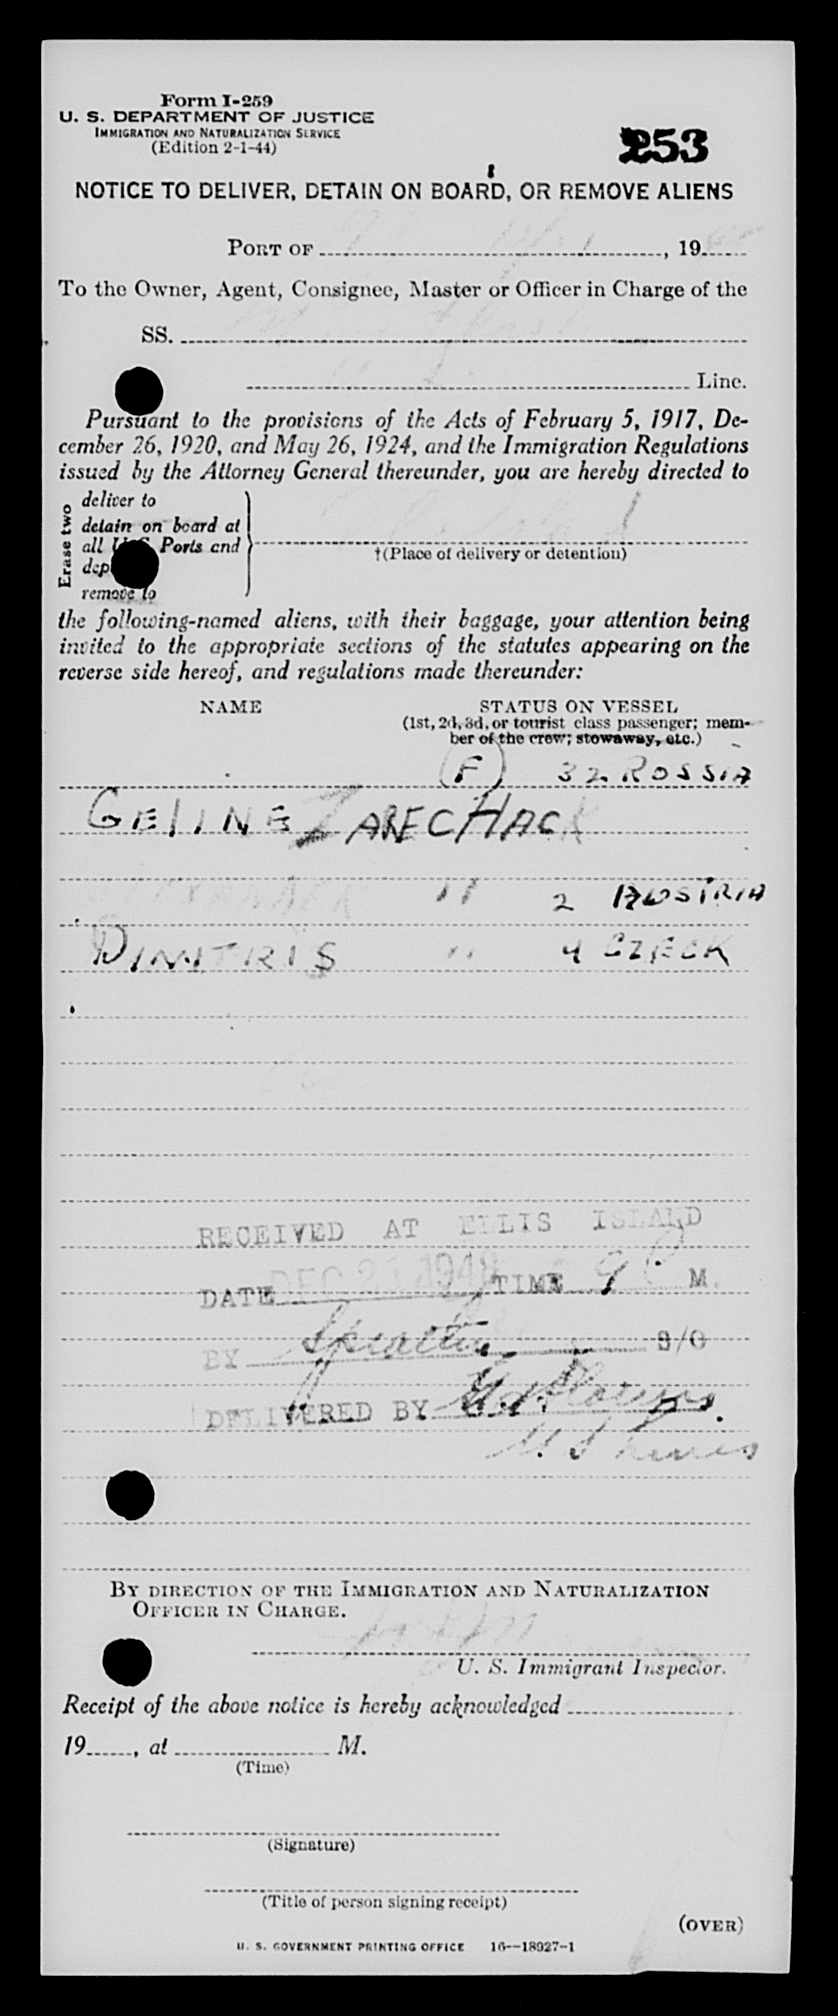 Form I-259
U. S. DEPARTMENT OF JUSTICE
IMMIGRATION AND NATURALIZATION SERVICE
(Edition 2-1-44)
253
NOTICE TO DELIVER, DETAIN ON BOARD, OR REMOVE ALIENS
PORT OF , 19
To the Owner, Agent, Consignee, Master or Officer in Charge of the
SS.
Line.
Pursuant to the provisions of the Acts of February 5, 1917, De-
cember 26, 1920, and May 26, 1924, and the Immigration Regulations
issued by the Attorney General thereunder, you are hereby directed to
Erase two
deliver to
detain on board at
all Ports and
remove to
†(Place of delivery or detention)
the following-named aliens, with their baggage, your attention being
invited to the appropriate sections of the statutes appearing on the
reverse side hereof, and regulations made thereunder:
NAME STATUS ON VESSEL
(1st, 2d, 3d, or tourist class passenger; mem-
ber of the crew; stowaway, etc.)
(F) 32 ROSSIA
GELINE ZARECHACK
" 2 AUSTRIA
DIMITRIS " 4 CZECK
RECEIVED AT ELLIS ISLAND
DATE DEC 1948 TIME 9 P M.
BY S/O
DELIVERED BY
By direction of the Immigration and Naturalization
Officer in Charge.
U. S. Immigrant Inspector.
Receipt of the above notice is hereby acknowledged
19 , at M.
(Time)
(Signature)
(Title of person signing receipt)
(OVER)
U. S. GOVERNMENT PRINTING OFFICE 16—18927-1